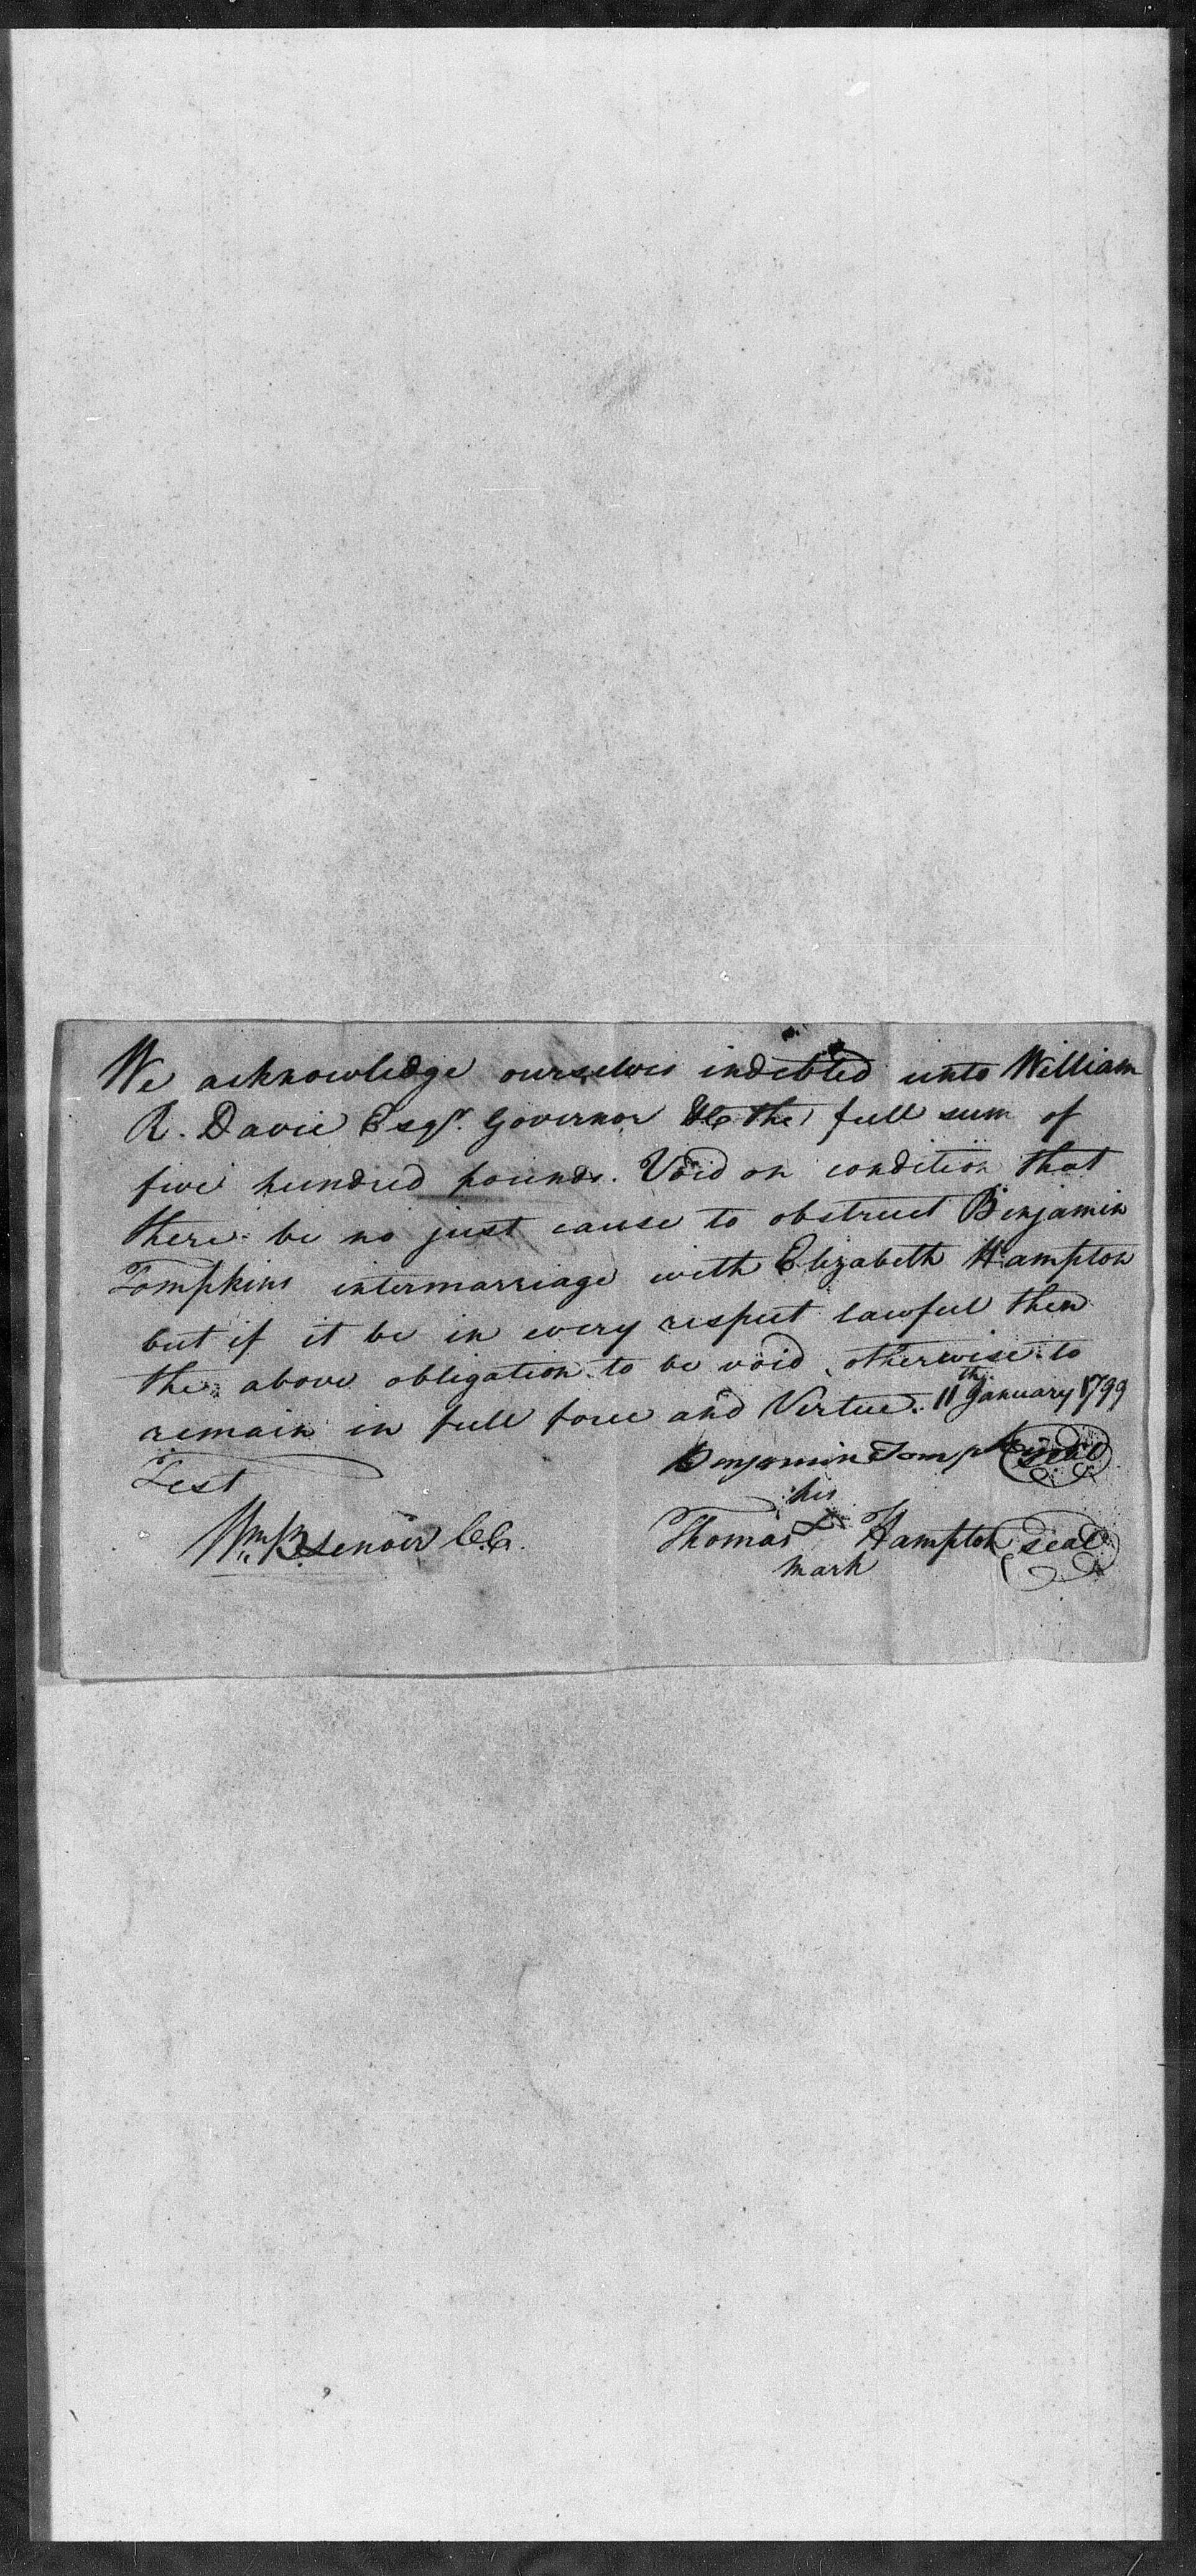 We acknowledge ourselves indebted unto William
R. Davie Esqr. Governor &c the full sum of
five hundred pounds. Void on condition that
there be no just cause to obstruct Benjamin
Tompkins intermarriage with Elizabeth Hampton
but if it be in every respect lawful then
the above obligation to be void, otherwise to
remain in full force and Virtue. 11th January 1799
Test
Benjamin Tompkins seal
his
Wm B Lenoir CC.
Thomas X Hampton seal
mark